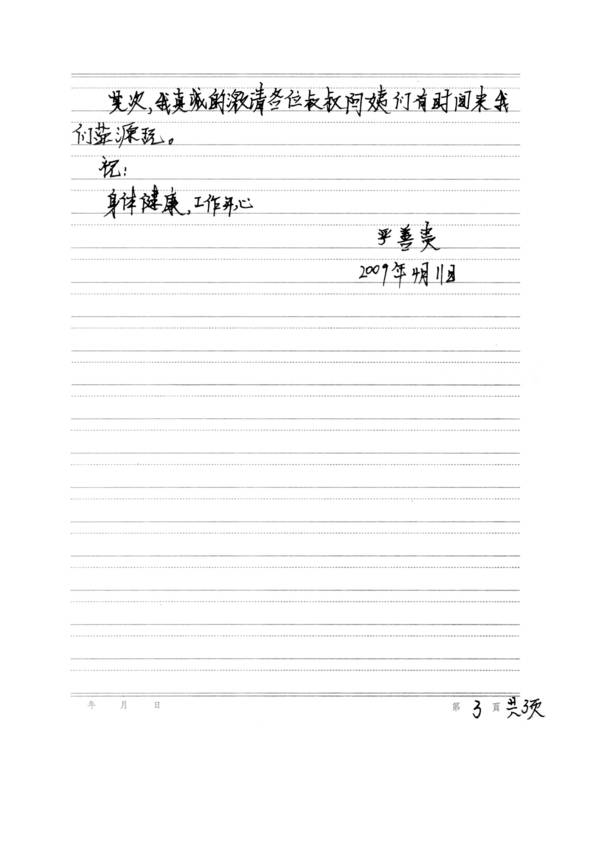 其次,我真诚的邀请各位叔叔阿姨们有时间来我
们益源玩。
祝:
身体健康,工作开心
严善贵
2009年4月11日
年 月 日 第 3 页 共3页